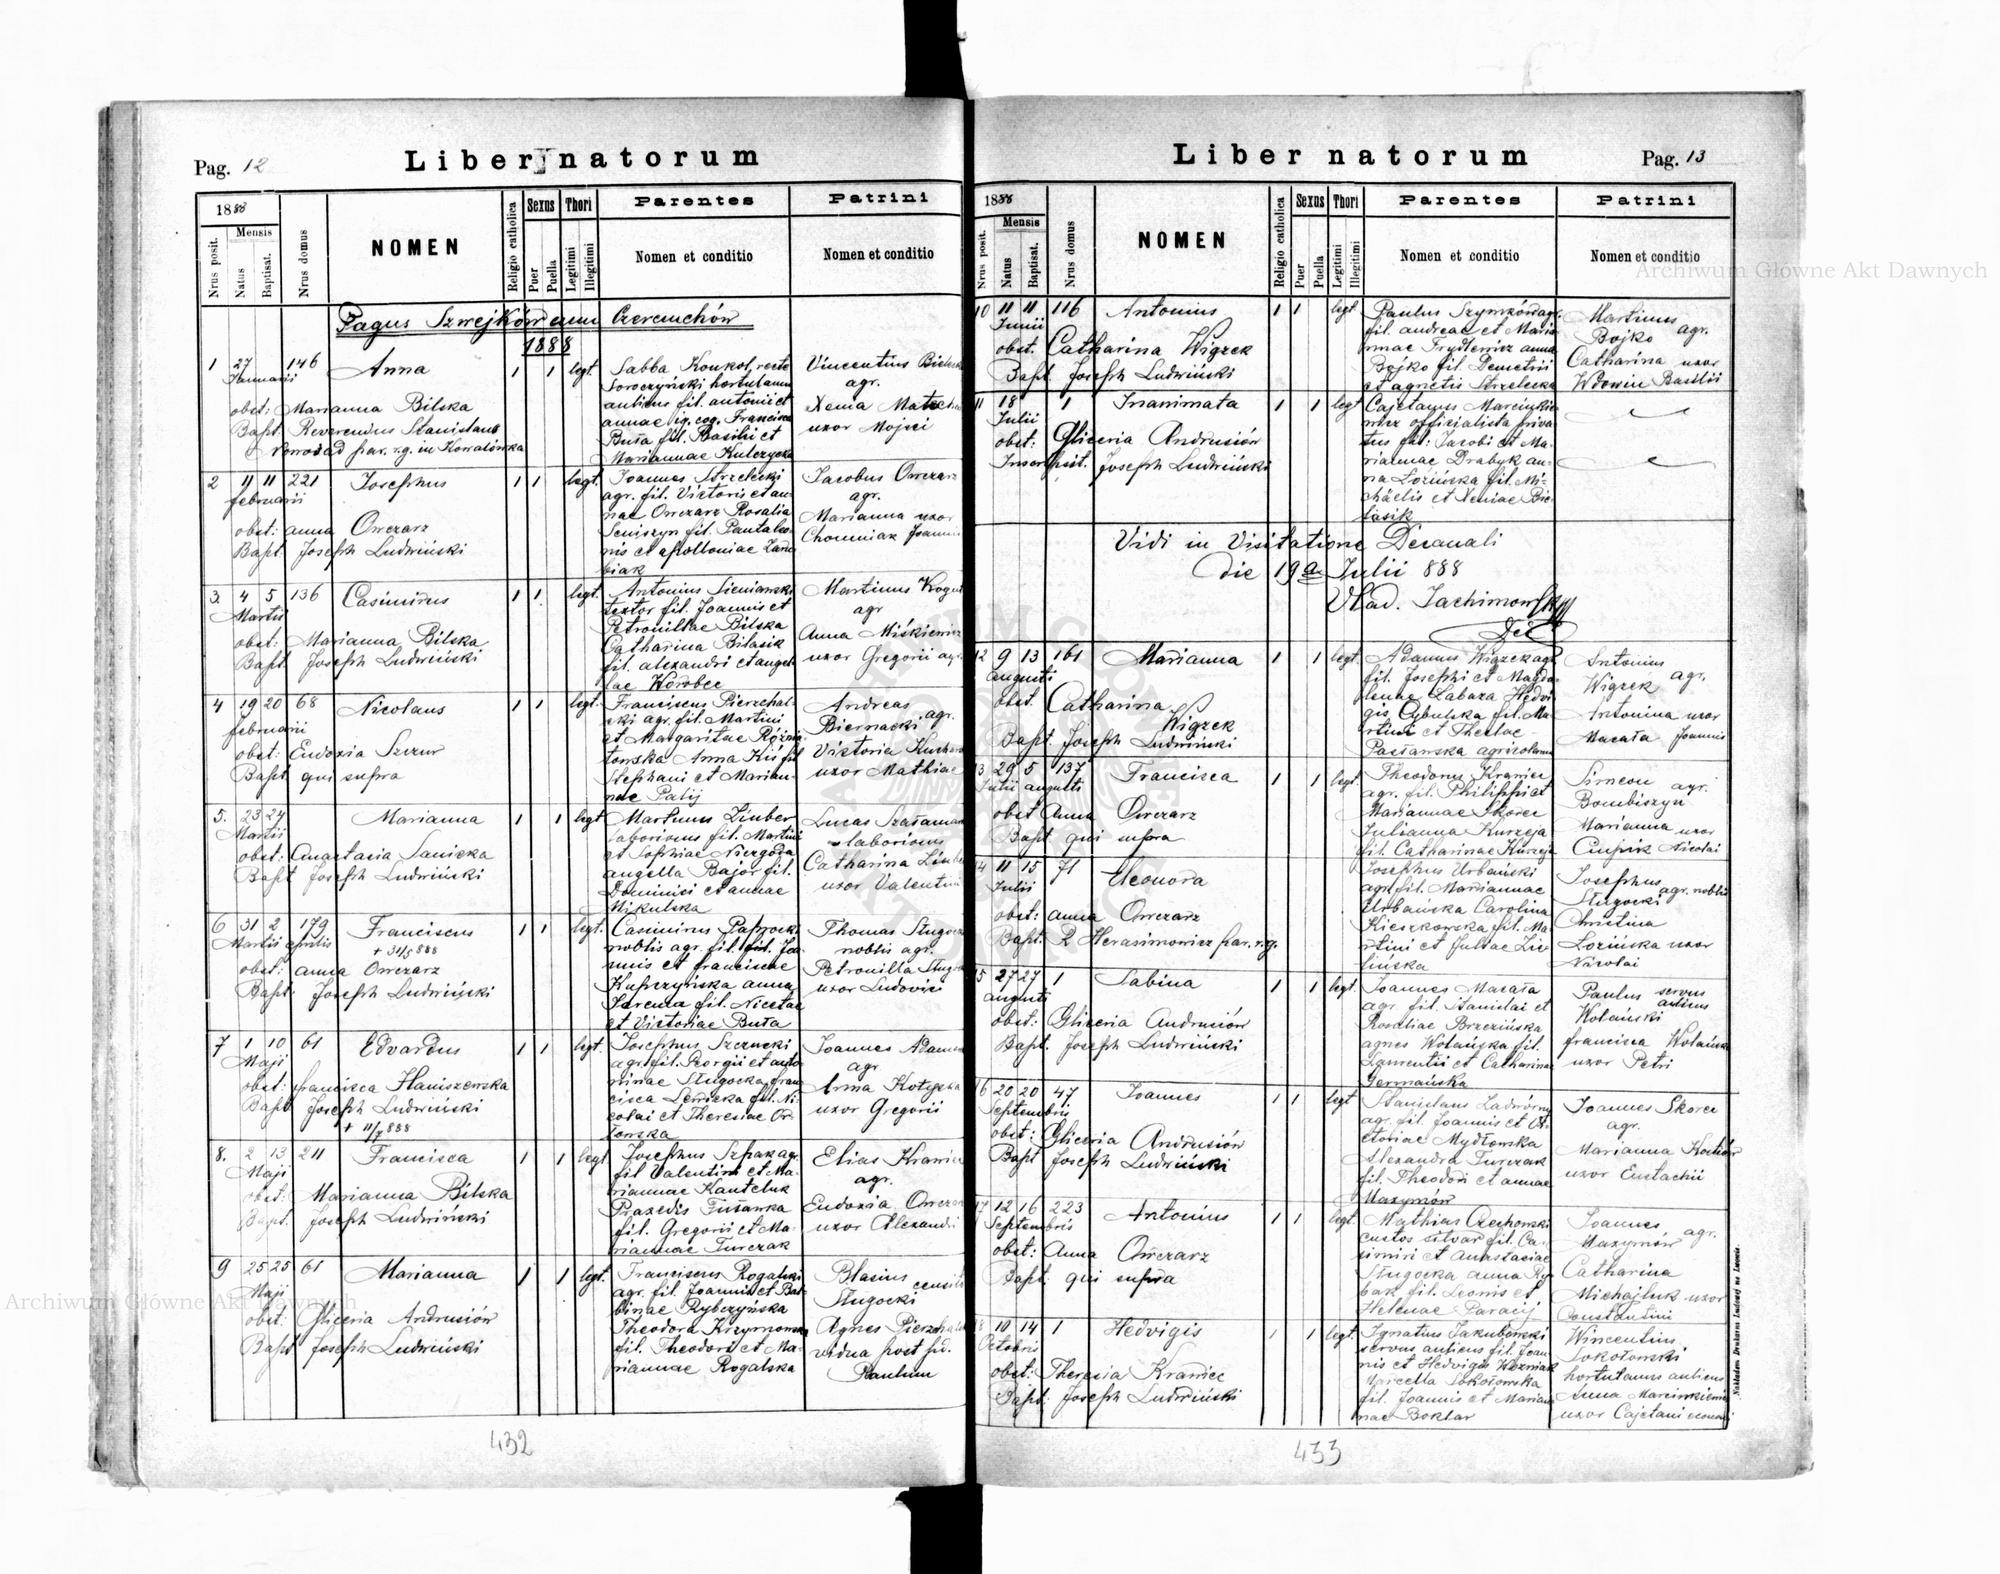 Pag. 12
Liber natorum
1888
Nrus posit.
Mensis
Natus
Baptisat.
Nrus domus
NOMEN
Religio catholica
Sexus
Puer
Puella
Thori
Legitimi
Illegitimi
Parentes
Nomen et conditio
Patrini
Nomen et conditio
Pagus Szwejków cum Czeremchów
1888
1 27 Januarii 146 Anna 1 1 legt.
obst: Marianna Bilska
Bapt. Reverendus Stanislaus
Nowosad par. r.g. in Kowalówka
Sabba Konkol, recte
Soroczyński hortulanus
aulicus fil. antonii et
annae ig. cog. Francisca
Buła fil. Basilii et
Mariannae Kulczycka
Vincentius
agr.
Xenia
uxor Mojsei
2 11 11 februarii 221 Josephus 1 1 legt.
obst: anna Owczarz
Bapt. Joseph Ludwiński
Joannes Strzelecki
agr. fil. Victoris et an
nae Owczarz Rosalia
Seniszyn fil. Pantaleo
nis et apolloniae
biak
Jacobus Owczarz
agr.
Marianna uxor
Chomniak Joannis
3. 4 5 Martii 136 Casimirus 1 1 legt.
obst: Marianna Bilska
Bapt. Joseph Ludwiński
Antonius Sieniawski
textor fil. Joannis et
Petronillae Bilska
Catharina Bilasik
fil. alexandri et angel
lae Worobec
Martinus Kogut
agr
Anna Miśkiewicz
uxor Gregorii agr.
4 19 20 februarii 68 Nicolaus 1 1 legt.
obst: Eudoxia Szczur
Bapt. qui supra
Franciscus Pierzchal
ski agr. fil. Martini
et Margaritae
towska Anna Kiś fil
Stephani et Marian-
nae Palij
Andreas
Biernacki agr.
Victoria
uxor Mathiae
5. 23 24 Martii Marianna 1 1 legt
obst: Anastasia Sanicka
Bapt Joseph Ludwiński
Martinus Limber
laborious fil. Martini
et Sophiae Niezgoda
angella Bajor fil.
Dominici et annae
Mikulska
Lucas
laborious
Catharina
uxor Valentini
6 31 2 Martii aprilis 179 Franciscus 1 1 legt.
+ 31/5 888
obst: anna Owczarz
Bapt. Joseph Ludwiński
Casimirus Paprocki
nobilis agr. fil. Joa
nnis et franciscae
Kupczyńska anna
Jarema fil. Nicetae
et Victoriae Buła
Thomas
nobilis agr.
Petronilla
uxor Ludovici
7 1 10 Maji 61 Edvardus 1 1 legt.
obst: francisca Haniszewska
Bapt Joseph Ludwiński
+ 11/7 888
Josephus Szczucki
agr. fil. Georgii et anto
ninae Sługocka fran
cisca Lewicka fil. Ni
colai et Theresiae Or
łowska
Joannes
agr
Anna
uxor Gregorii
8. 2 13 Maji 211 Francisca 1 1 legt
obst: Marianna Bilska
Bapt. Joseph Ludwiński
Josephus Szpak agr.
fil Valentini et Ma-
riannae Kanteluk
Praxedis Fuzanka
fil. Gregorii et Ma-
riannae Turczak
Elias Krawiec
agr.
Eudoxia Owczarz
uxor Alexandri
9 25 25 Maji 61 Marianna 1 1 legt.
obst: Gliceria Andrusiów
Bapt Joseph Ludwiński
Franciscus Rogalski
agr. fil. Joannis et Bal
binae Rybczyńska
Theodora Krzymowska
fil. Theodori et Ma-
riannae Rogalska
Blasius
Sługocki
Agnes
vidua post
Paulum
432
Liber natorum
Pag. 13
1888
Nrus posit.
Mensis
Natus
Baptisat.
Nrus domus
NOMEN
Religio catholica
Sexus
Puer
Puella
Thori
Legitimi
Illegitimi
Parentes
Nomen et conditio
Patrini
Nomen et conditio
10 11 11 Junii 116 Antonius 1 1 legt
obst. Catharina Wiązek
Bapt. Joseph Ludwiński
Paulus agr.
fil. andreae et Maria
nnae Frydlewicz anna
Bojko fil. Demetrii
et agnetis Strzelecka
Martinus
Bojko agr.
Catharina uxor
Wdowin Basilii
11 18 Julii 1 Inanimata 1 1 legt
obst: Gliceria Andrusiów
Joseph Ludwiński
Cajetanus Marcinkie
wicz officialista priva
tus fil: Jacobi et Ma-
riannae Drabyk an-
na Łozińska fil. Mi-
chaelis et Xeniae Bie
lasik
Vidi in Visitatione Decanali
die 19 a Julii 888
Vlad. Jachimowski
12 9 13 augusti 161 Marianna 1 1 legt.
obst. Catharina
Wiązek
Bapt. Joseph Ludwiński
Adamus Wiązek agr.
fil. Josephi et Magda
lenae Labaza Hedvi
gis Cybulska fil. Ma
rtini et Theclae
Pasławska agricolarum
Antonius
Wiązek agr.
Antonina uxor
Macała Joannis
13 29 5 Julii augusti 137 Francisca 1 1 legt.
obst Anna Owczarz
Bapt. qui supra
Theodorus Krawiec
agr. fil. Philippi et
Mariannae Skorec
Julianna Kurzeja
fil. Catharinae Kurzeja
Simeon agr.
Bombiszyn
Marianna uxor
Nicolai
14 11 15 Julii 71 Eleonora
obst: anna Owczarz
Bapt. Herasimowicz par. r.g.
Josephus Urbański
agr. fil. Mariannae
Urbańska Carolina
Kieszkowska fil. Ma
rtini et Juliae Zie
lińska
Josephus
Sługocki agr. nobilis
Christina
Łozińska uxor
Nicolai
15 27 27 augusti 1 Sabina 1 1 legt.
obst: Gliceria Andrusiów
Bapt. Joseph Ludwiński
Joannes Macała
agr. fil. Stanislai et
Rosaliae Brzezińska
agnes Wolańska fil.
Laurentii et Catharinae
Germańska
Paulus servus
aulicus
Wolański
francisca Wolańska
uxor Petri
16 20 20 Septembris 47 Joannes 1 1 legt
obst: Gliceria Andrusiów
Bapt Joseph Ludwiński
Stanislaus Zadworny
agr. fil. Joannis et Vi
ctoriae Mydłowska
Alexandra Turczak
fil. Theodori et annae
Maxymów
Joannes Skorec
agr.
Marianna
uxor Eustachii
17 12 16 Septembris 223 Antonius 1 1 legt.
obst: Anna Owczarz
Bapt: qui supra
Mathias Czechowski
custos silvar fil. Ca-
simiri et Anastasiae
Sługocka anna Ry
bak fil. Leonis et
Helenae Paracij
Joannes agr.
Maxymów
Catharina
Michajluk uxor
Constantini
18 10 14 Octobris 1 Hedvigis 1 1 legt.
obst: Theresia Krawiec
Bapt. Joseph Ludwiński
Ignatius Jakubowski
servus aulicus fil. Joan
nis et Hedvigis Woźniak
Marcella Sokołowska
fil. Joannis et Marian
nae Boklar
Wincentius
Sokołowski
hortulanus aulicus
Anna Marcinkiewicz
uxor Cajetani
Nakładem Drukarni Ludowej we Lwowie.
433
Archiwum Główne Akt Dawnych
Archiwum Główne Akt Dawnych